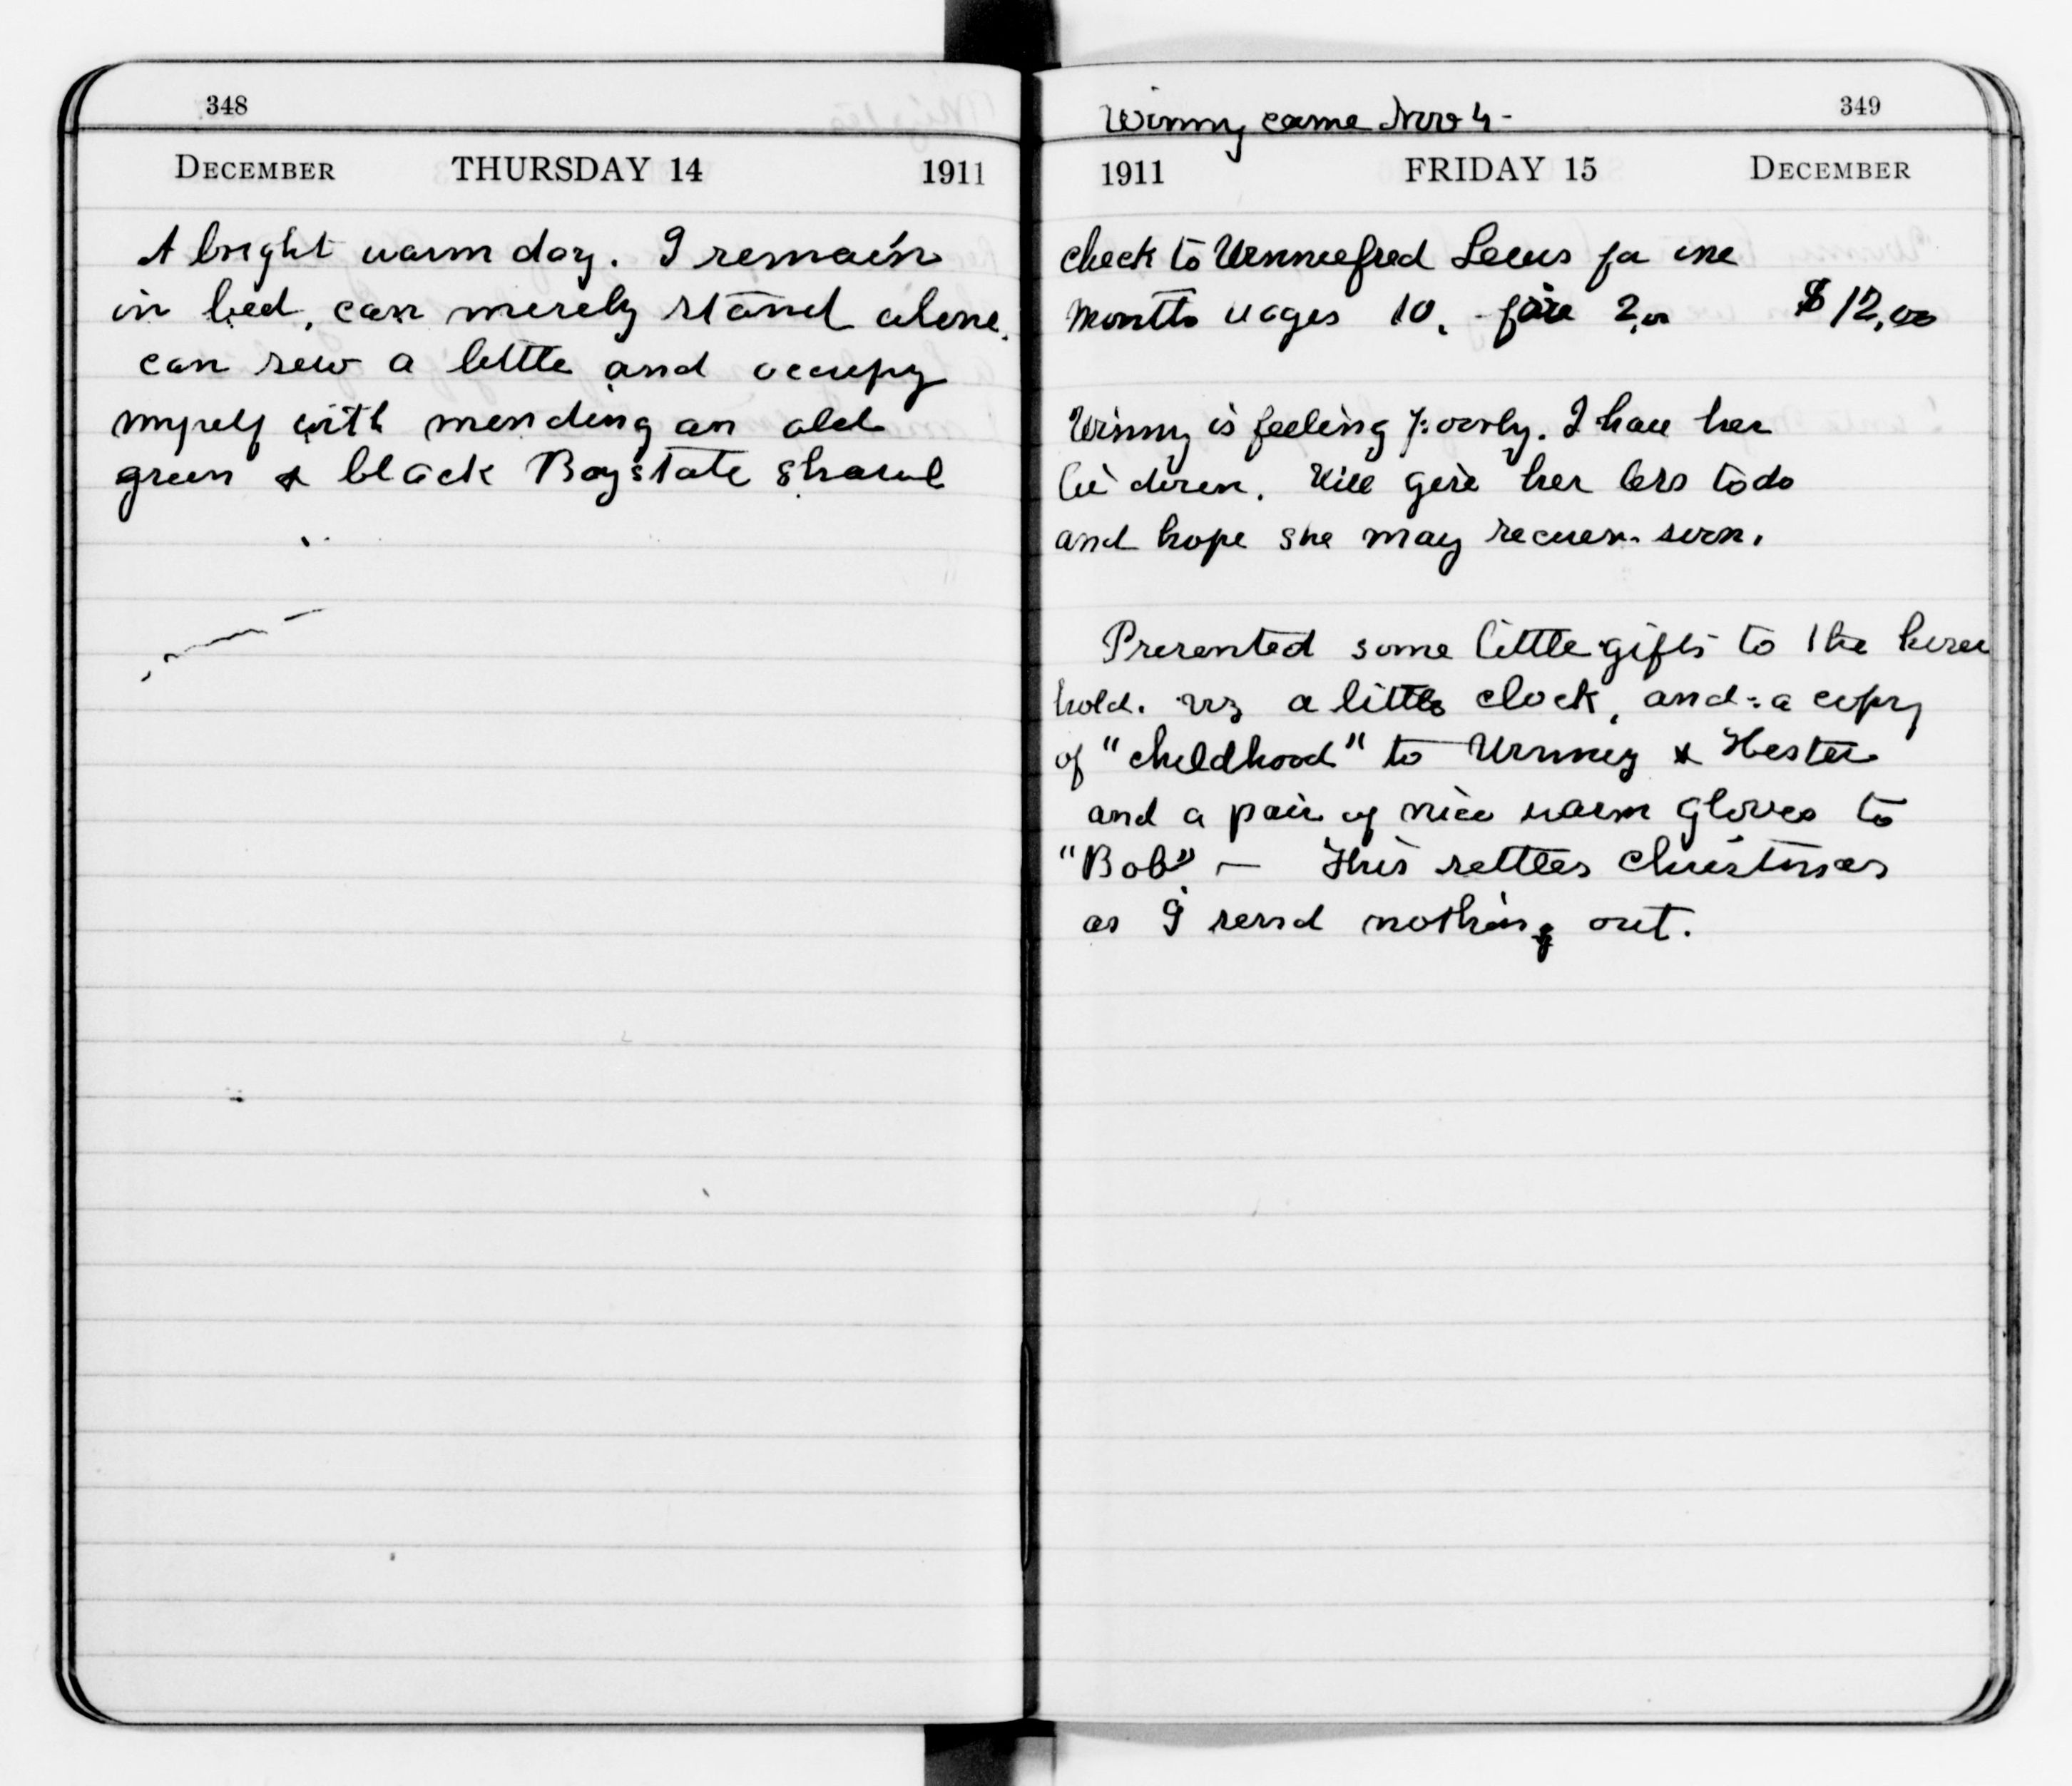 348
DECEMBER THURSDAY 14 1911
A bright warm day. I remain
in bed, can merely stand alone.
can sew a little and occupy
myself with mending an old
green & black Baystate shawl
Winny came Nov 4-
349
1911 FRIDAY 15 DECEMBER
check to Winniefred Lewis for one
months wages 10. - fare 2.00 $12.00
Winny is feeling poorly. I have her
lie down. Will give her less to do
and hope she may recover soon.
Presented some little gifts to the house
hold. viz a little clock, and a copy
of "childhood" to Winney & Hester
and a pair of nice warm gloves to
"Bob" — This settles Christmas
as I send nothing out.